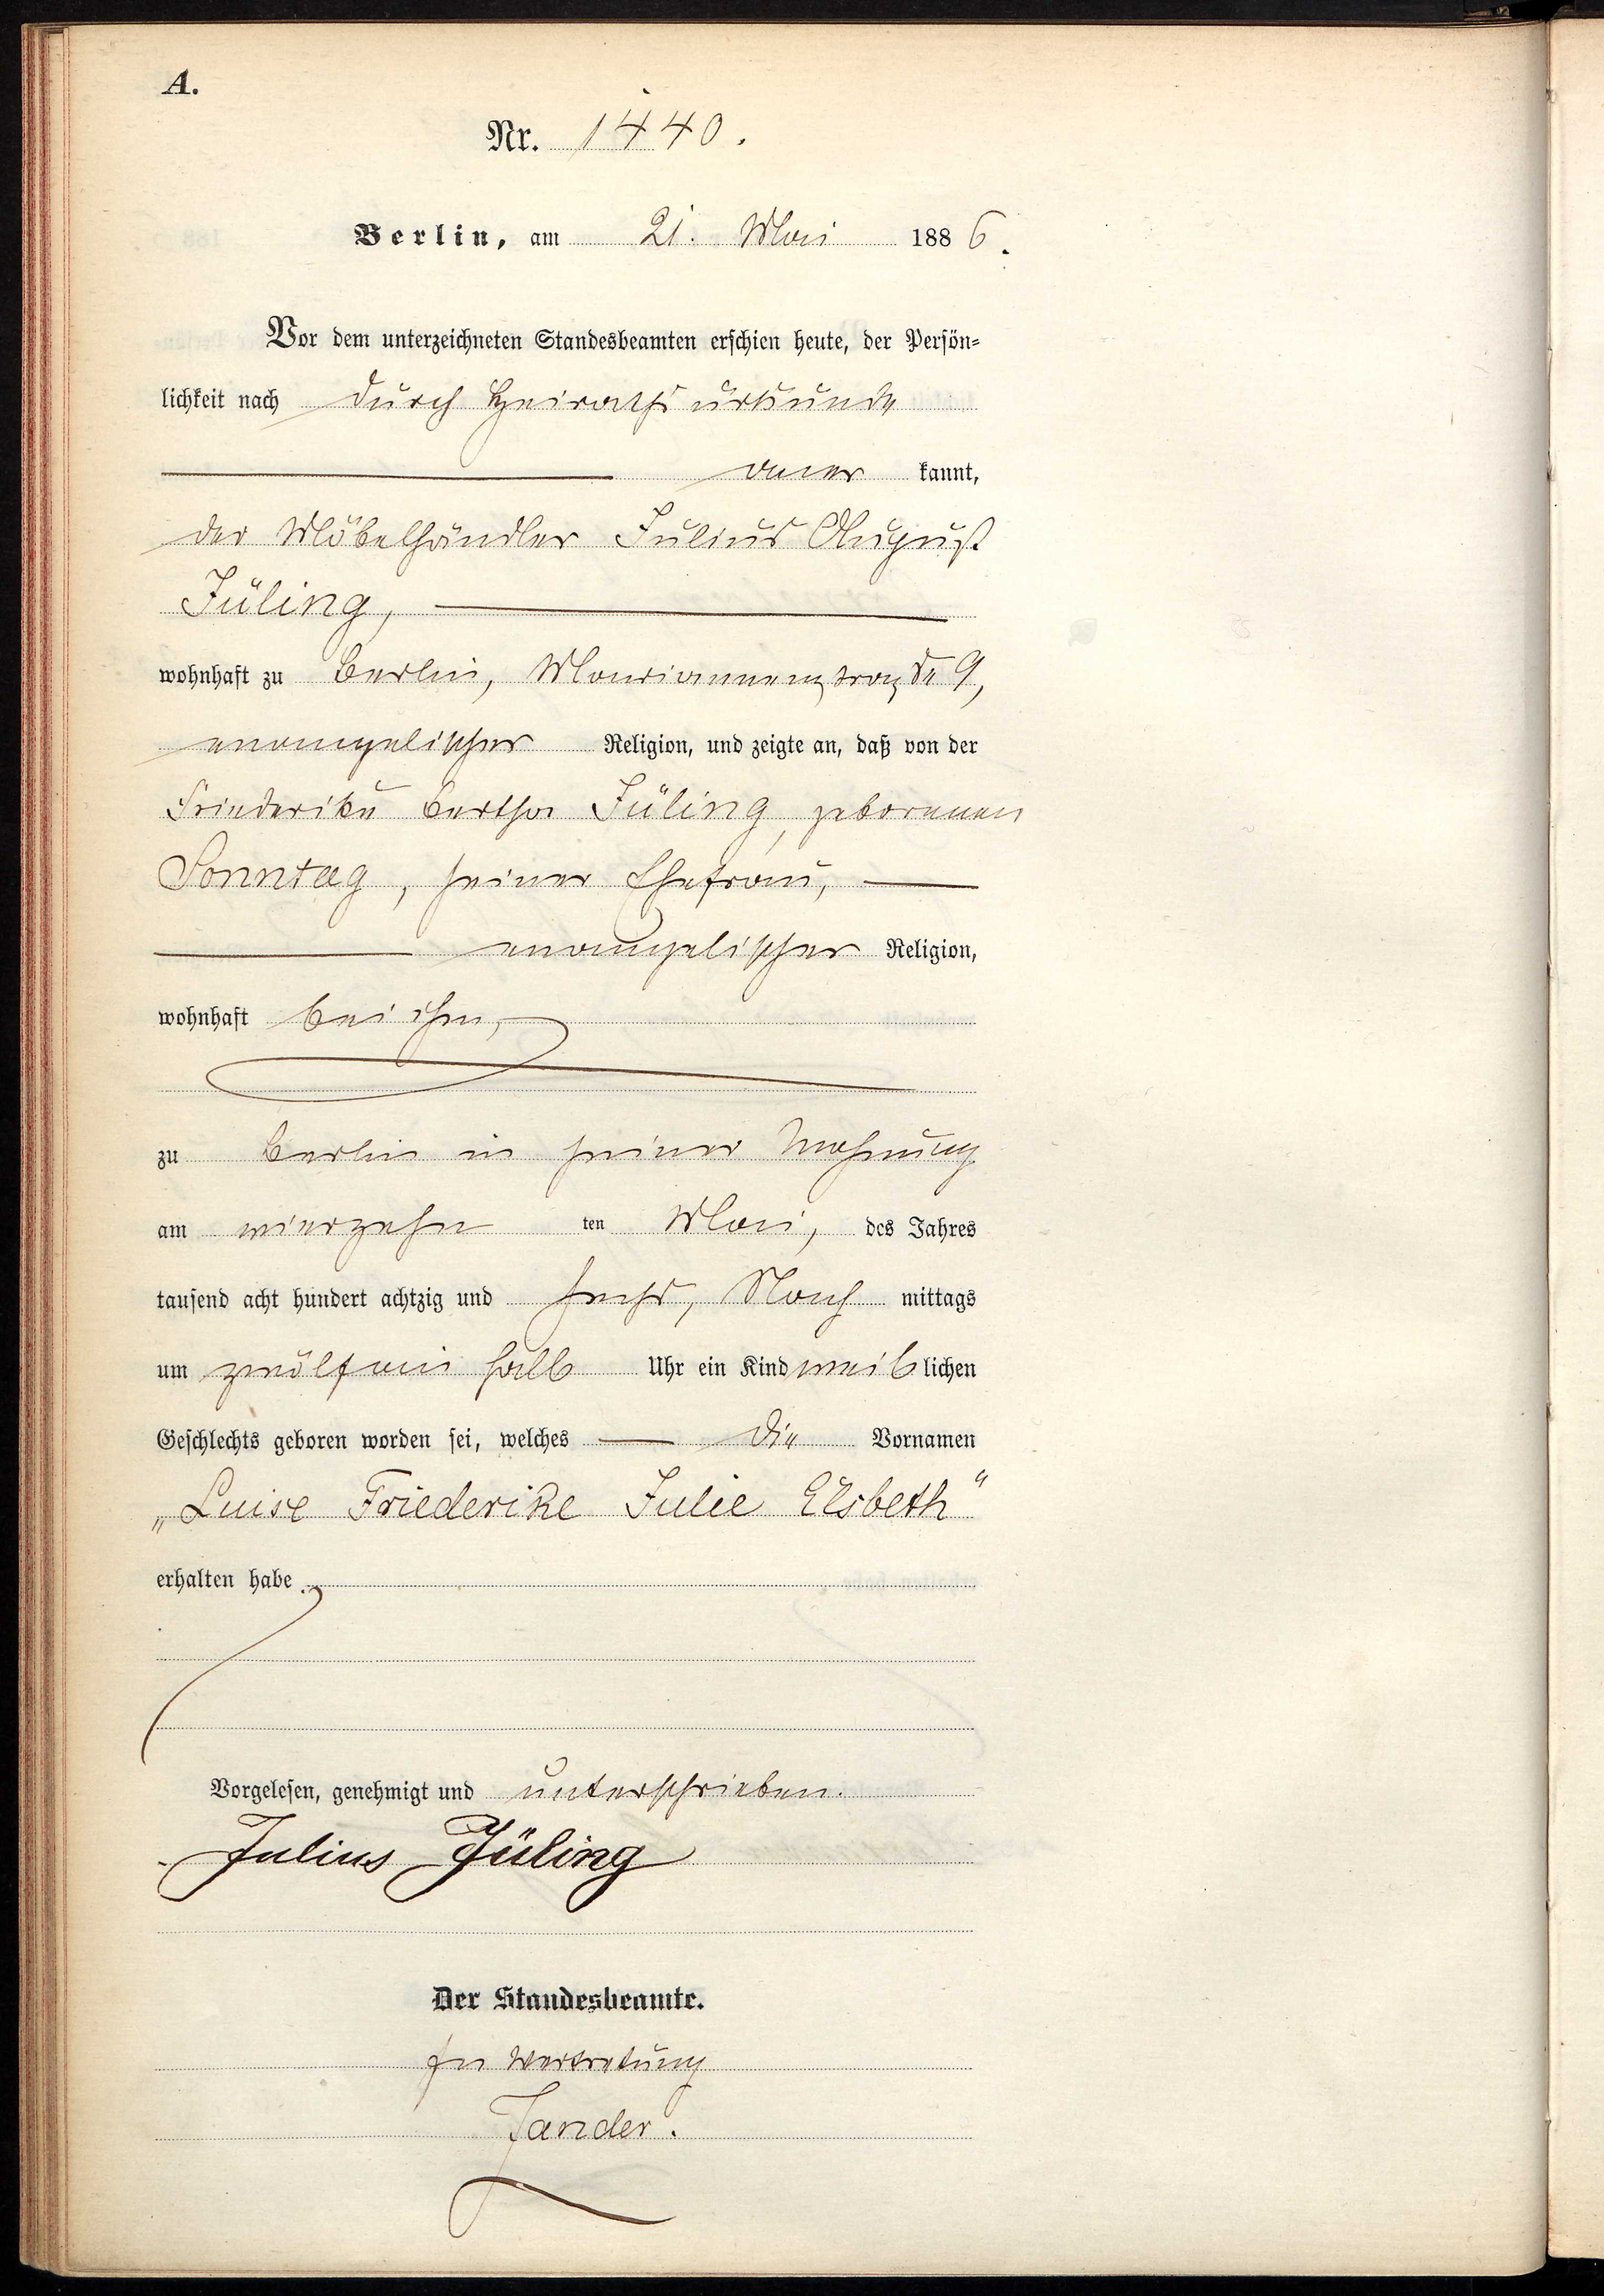 A.
Nr. 1440.
Berlin, am 21. Mai 1886.
Vor dem unterzeichneten Standesbeamten erschien heute, der Persön-
lichkeit nach durch Heirathsurkunde
aner kannt,
der Möbelhändler Julius August
Jüling,
wohnhaft zu Berlin, Mariannenstraße 9,
evangelischer Religion, und zeigte an, daß von der
Friederike Bertha Jüling, geborenen
Sonntag, seiner Ehefrau,
evangelischer Religion,
wohnhaft bei ihm,
zu Berlin in seiner Wohnung
am vierzehn ten Mai, des Jahres
tausend acht hundert achtzig und sechs, Nach mittags
um zwölfein halb Uhr ein Kind weib lichen
Geschlechts geboren worden sei, welches die Vornamen
„Luise Friederike Julie Elsbeth“
erhalten habe.
Vorgelesen, genehmigt und unterschrieben.
Julius Jüling
Der Standesbeamte.
In Vertretung
Jander.